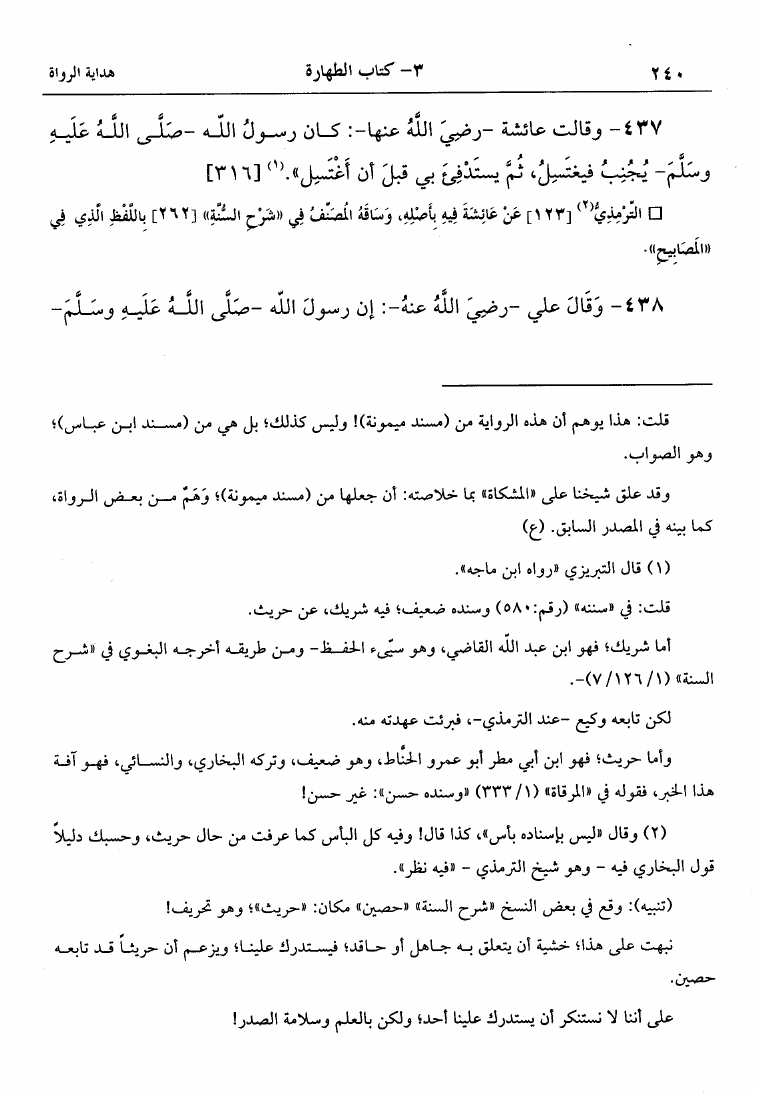 ٢٤٠ ٣- كتاب الطهارة هداية الرواة
٤٣٧- وقالت عائشة -رضِيَ اللَّهُ عنها-: كـان رسـولُ اللّه -صَلَّـى اللَّـهُ عَلَيـهِ
وسَلَّمَ- يُجْنِبُ فيغتَسِلُ، ثُمَّ يستَدْفِئُ بي قبلَ أن أَغْتَسِل».(١) [٣١٦]
□ التِّرْمِذِيُّ(٢) [١٢٣] عَنْ عَائِشَةَ فِيهِ بِأَصْلِهِ، وَسَاقَهُ المُصَنِّفُ فِي «شَرْحِ السُّنَّةِ» [٢٦٢] بِاللَّفْظِ الَّذِي فِي
«المَصَابِيحِ».
٤٣٨- وَقَالَ علي -رضِيَ اللَّهُ عنهُ-: إن رسولَ اللّه -صَلَّى اللَّـهُ عَلَيهِ وسَلَّمَ-
قلت: هذا يوهم أن هذه الرواية من (مسند ميمونة)! وليس كذلك؛ بل هي من (مسـند ابـن عبـاس)؛
وهو الصواب.
وقد علق شيخنا على «المشكاة» بما خلاصته: أن جعلها من (مسند ميمونة)؛ وَهَمٌ مـن بعـض الـرواة،
كما بينه في المصدر السابق. (ع)
(١) قال التبريزي «رواه ابن ماجه».
قلت: في «سننه» (رقم:٥٨٠) وسنده ضعيف؛ فيه شريك، عن حريث.
أما شريك؛ فهو ابن عبد اللّه القاضي، وهو سيِّىء الحفـظ- ومـن طريقـه أخرجـه البغـوي في «شـرح
السنة» (٧/١٢٦/١)-.
لكن تابعه وكيع -عند الترمذي-، فبرئت عهدته منه.
وأما حريث؛ فهو ابن أبي مطر أبو عمرو الحنَّاط، وهو ضعيف، وتركه البخاري، والنسـائي، فهـو آفـة
هذا الخبر، فقوله في «المرقاة» (٣٣٣/١) «وسنده حسن»: غير حسن!
(٢) وقال «ليس بإسناده بأس»، كذا قال! وفيه كل البأس كما عرفت من حال حريث، وحسبك دليلاً
قول البخاري فيه - وهو شيخ الترمذي - «فيه نظر».
(تنبيه): وقع في بعض النسخ «شرح السنة» «حصين» مكان: «حريث»؛ وهو تحريف!
نبهت على هذا؛ خشية أن يتعلق بـه جـاهل أو حـاقد؛ فيسـتدرك علينـا؛ ويزعـم أن حريثـاً قـد تابعـه
حصين.
على أننا لا نستنكر أن يستدرك علينا أحد؛ ولكن بالعلم وسلامة الصدر!